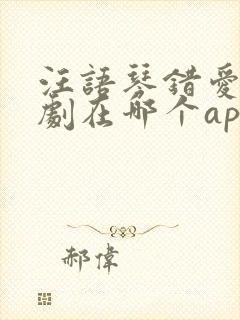 汪語琴錯愛
劇在哪个ap
郝偉